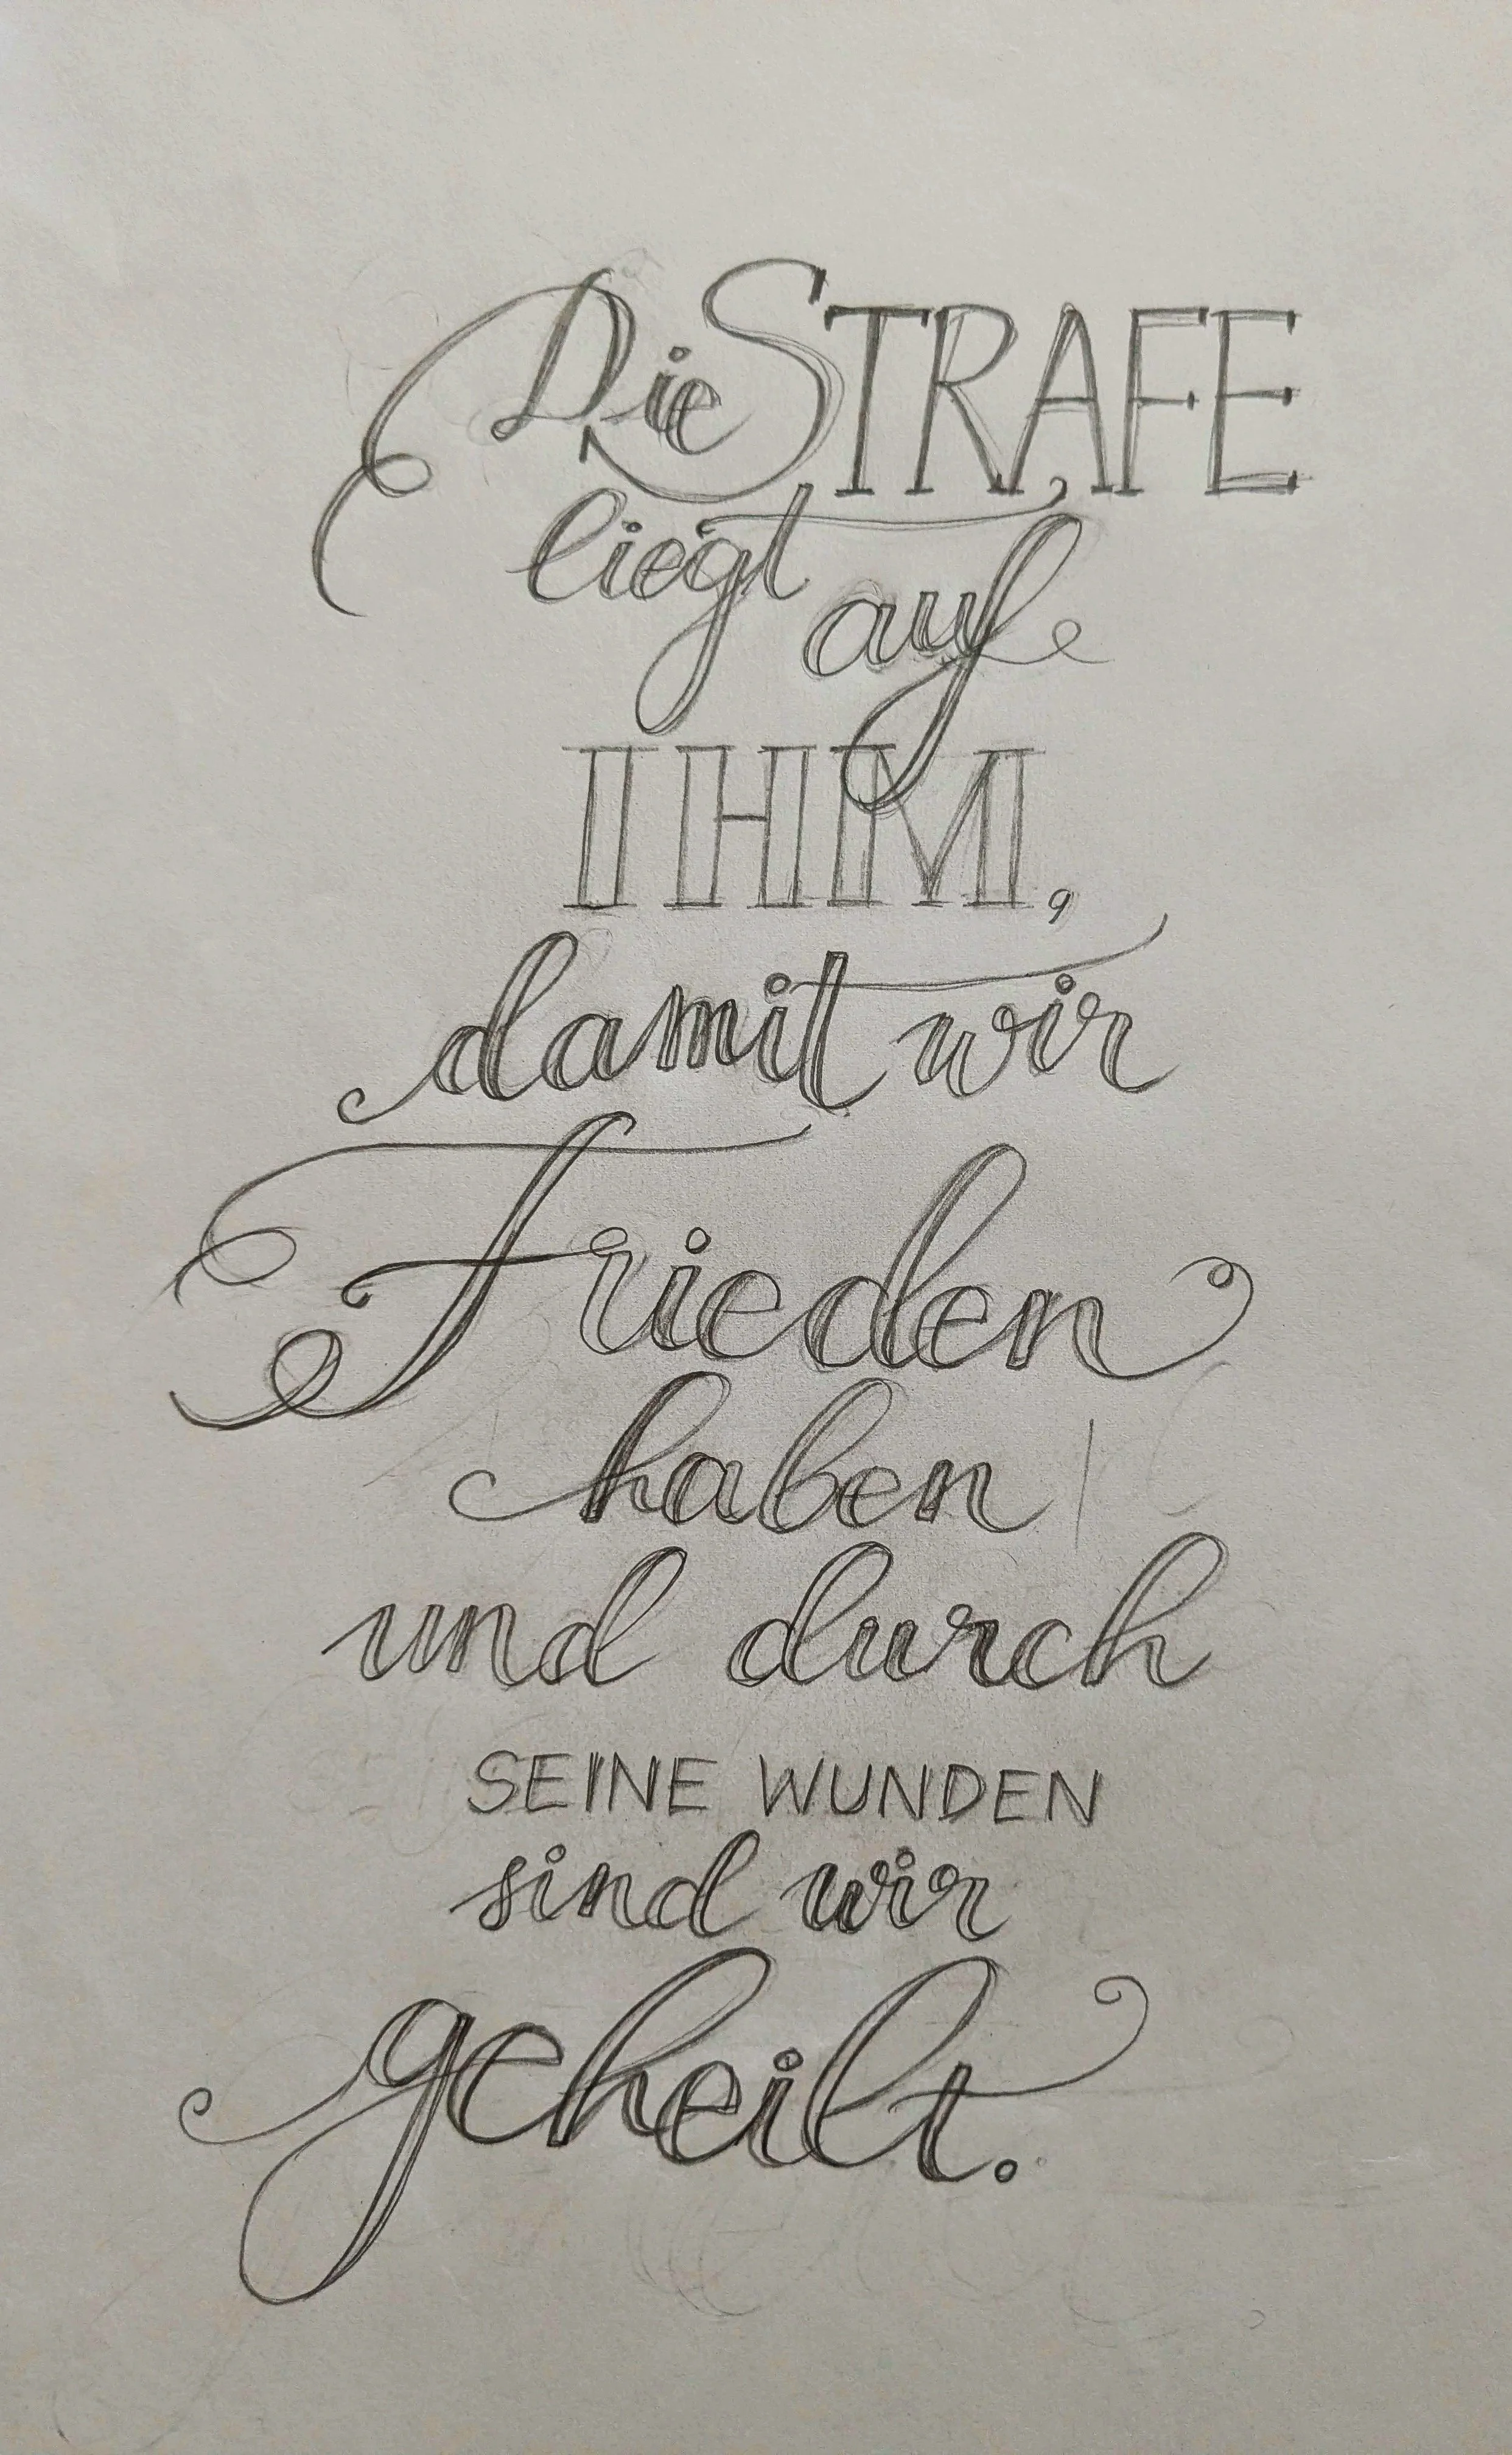 Die STRAFE
liegt auf
IHM,
damit wir
Frieden
haben
und durch
SEINE WUNDEN
sind wir
geheilt.